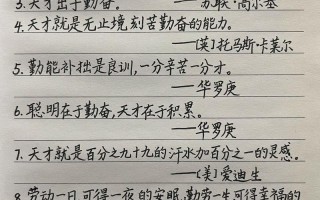 3.天才出于勤奋。 ——苏联·高尔基
4.天才就是无止境刻苦勤奋的能力。
——[英]托马斯·卡莱尔
5.勤能补拙是良训,一分辛苦一分才。
——华罗庚
6.聪明在于勤奋,天才在于积累。
——华罗庚
7.天才就是百分之九十九的汗水加百分之一的灵感。
——[美]爱迪生
8.劳动一日,可得一夜的安眠,勤劳一生,可得幸福的